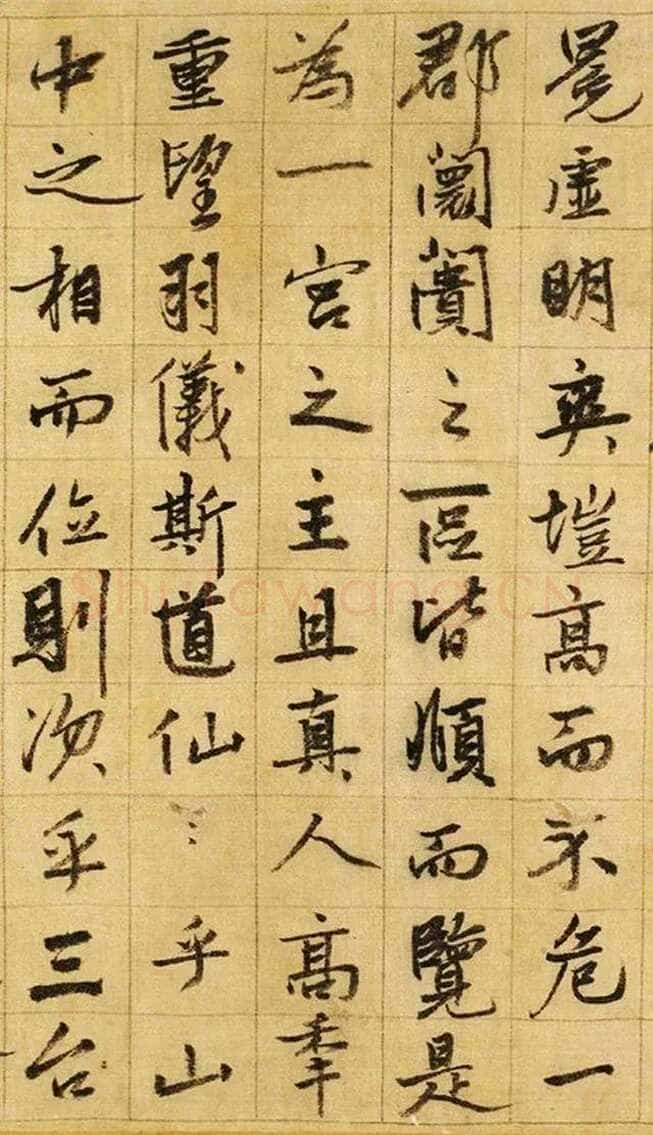 晃虚明爽塏高而不危一
郡闤闠之區皆順而覽是
為一宮之主且真人高秊
重望羽儀斯道仙〻乎山
中之相而位則次乎三台
Shufawang.CN